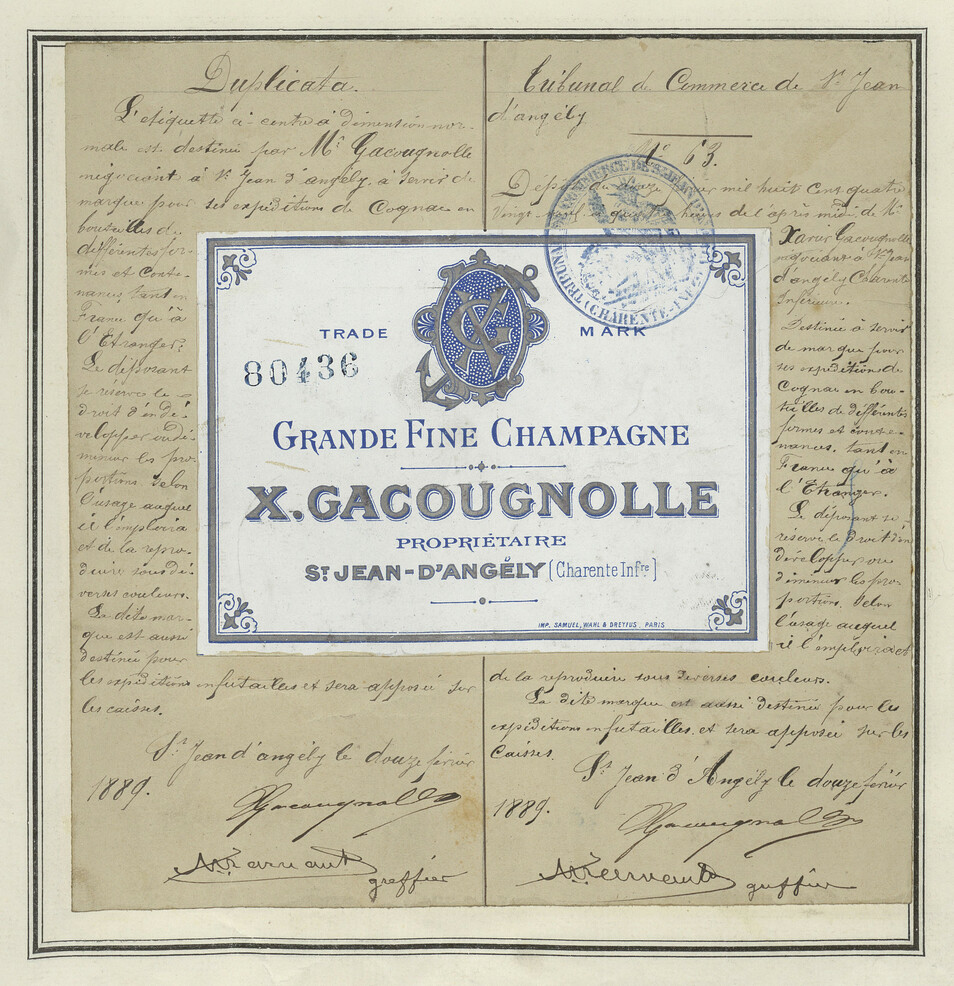 Duplicata.
L'étiquette ci-contre à dimension nor-
male est destinée par Mr Gacougnolle
négociant à St Jean d'angély, à servir de
marque pour ses expéditions de Cognac en
bouteilles de
différentes for-
mes et conte-
nances, tant en
France qu'à
l'Etranger.
Le déposant
se réserve le
droit d'en dé-
velopper ou di-
minuer les pro-
portions selon
l'usage auquel
il l'emploiera
et de la repro-
duire sous di-
verses couleurs.
La dite mar-
que est aussi
destinée pour
les expéditions en futailles et sera apposée sur
les caisses.
St Jean d'angély le douze février
1889.
XGacougnolle
greffier
Tribunal de Commerce de St Jean
d'angély
No 63.
Dépôt du douze février mil huit cent quatre
vingt neuf à quatre heures de l'après midi de Mr
Xavier Gacougnolle
négociant à St Jean
d'angély Charente
Inférieure.
Destinée à servir
de marque pour
ses expéditions de
Cognac en bou-
teilles de différentes
formes et conte-
nances, tant en
France qu'à
l'Etranger.
Le déposant se
réserve le droit d'en
développer ou
diminuer les pro-
portions, selon
l'usage auquel
il l'emploiera et
de la reproduire sous diverses couleurs.
La dite marque est aussi destinée pour les
expéditions en futailles, et sera apposée sur les
Caisses.
St Jean d'Angély le douze février
1889.
XGacougnolle
greffier
TRIBUNAL DE COMMERCE DE ST JEAN D'ANGÉLY
(CHARENTE-INFRE)
TRADE MARK
XG
80436
GRANDE FINE CHAMPAGNE
X. GACOUGNOLLE
PROPRIÉTAIRE
ST JEAN-D'ANGÉLY (Charente Infre)
IMP. SAMUEL, WAHL & DREYFUS, PARIS